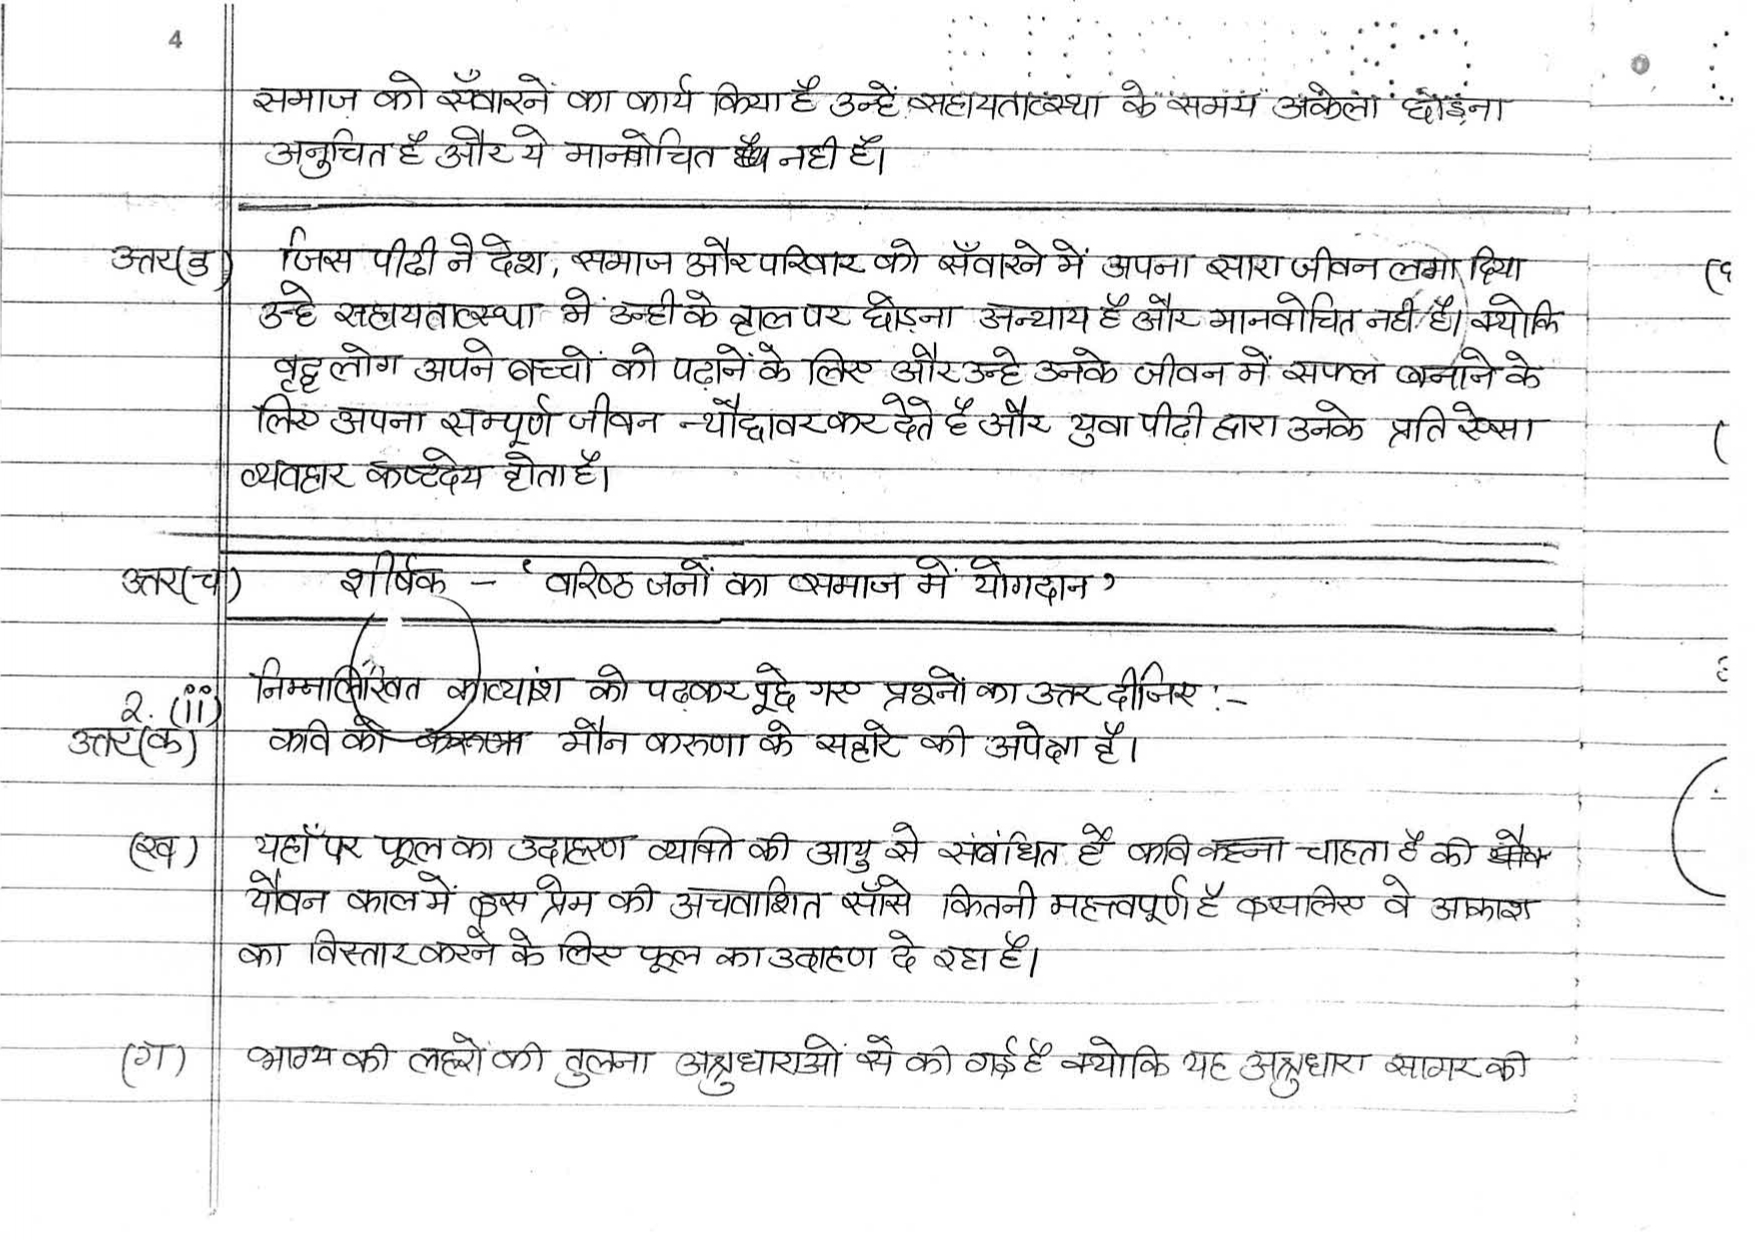 4
समाज को सँवारनें का कार्य किया है उन्हें सहायतावस्था के समय अकेला छोड़ना
अनुचित है और ये मानवोचित नही है।
उत्तर(ड) जिस पीढी ने देश, समाज और परिवार को सँवारने में अपना सारा जीवन लगा दिया
उन्हे सहायतावस्था में उन्ही के हाल पर छोड़ना अन्याय है और मानवोचित नही है। क्योकि
वृद्ध लोग अपने बच्चों को पढ़ानें के लिए और उन्हे उनके जीवन में सफल बनाने के
लिए अपना सम्पूर्ण जीवन न्यौछावर कर देते है और युवा पीढ़ी द्वारा उनके प्रति ऐसा
व्यवहार कष्टदेय होता है।
उत्तर(च) शीर्षक - ‘वरिष्ठ जनों का समाज में योगदान’
2. (ii) निम्नलिखित काव्यांश को पढ़कर पूछे गए प्रश्नों का उत्तर दीजिए :-
उत्तर(क) कवि को मौन करुणा के सहारे की अपेक्षा है।
(ख) यहाँ पर फूल का उदाहरण व्यक्ति की आयु से संबंधित है कवि कहना चाहता है की
यौवन काल में इस प्रेम की अचवाशित साँसे कितनी महत्वपूर्ण है इसलिए वे आकाश
का विस्तार करने के लिए फूल का उदाहण दे रहा है।
(ग) भाग्य की लहरों की तुलना अश्रुधाराओं से की गई है क्योकि यह अश्रुधारा सागर की